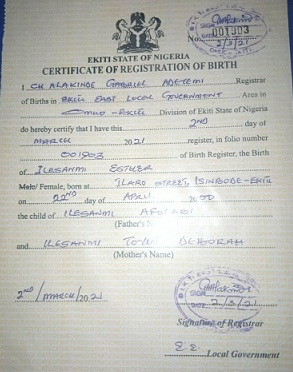 No. 001903
2/3/21
EKITI STATE OF NIGERIA
CERTIFICATE OF REGISTRATION OF BIRTH
I Registrar
of Births in EKITI EAST LOCAL GOVERNMENT Area in
OMUO - EKITI Division of Ekiti State of Nigeria
do hereby certify that I have this 2ND day of
MARCH 2021 register, in folio number
001903 of Birth Register, the Birth
of ILESANMI ESTHER
Male/ Female, born at ILARO STREET, ISINBODE - EKITI
on 22ND day of APRIL
the child of ILESANMI AFOLABI
(Father's
and ILESANMI TOYIN DEBORAH
(Mother's Name)
2ND/MARCH/2021
2/3/21
Signature of Registrar
E.E. Local Government